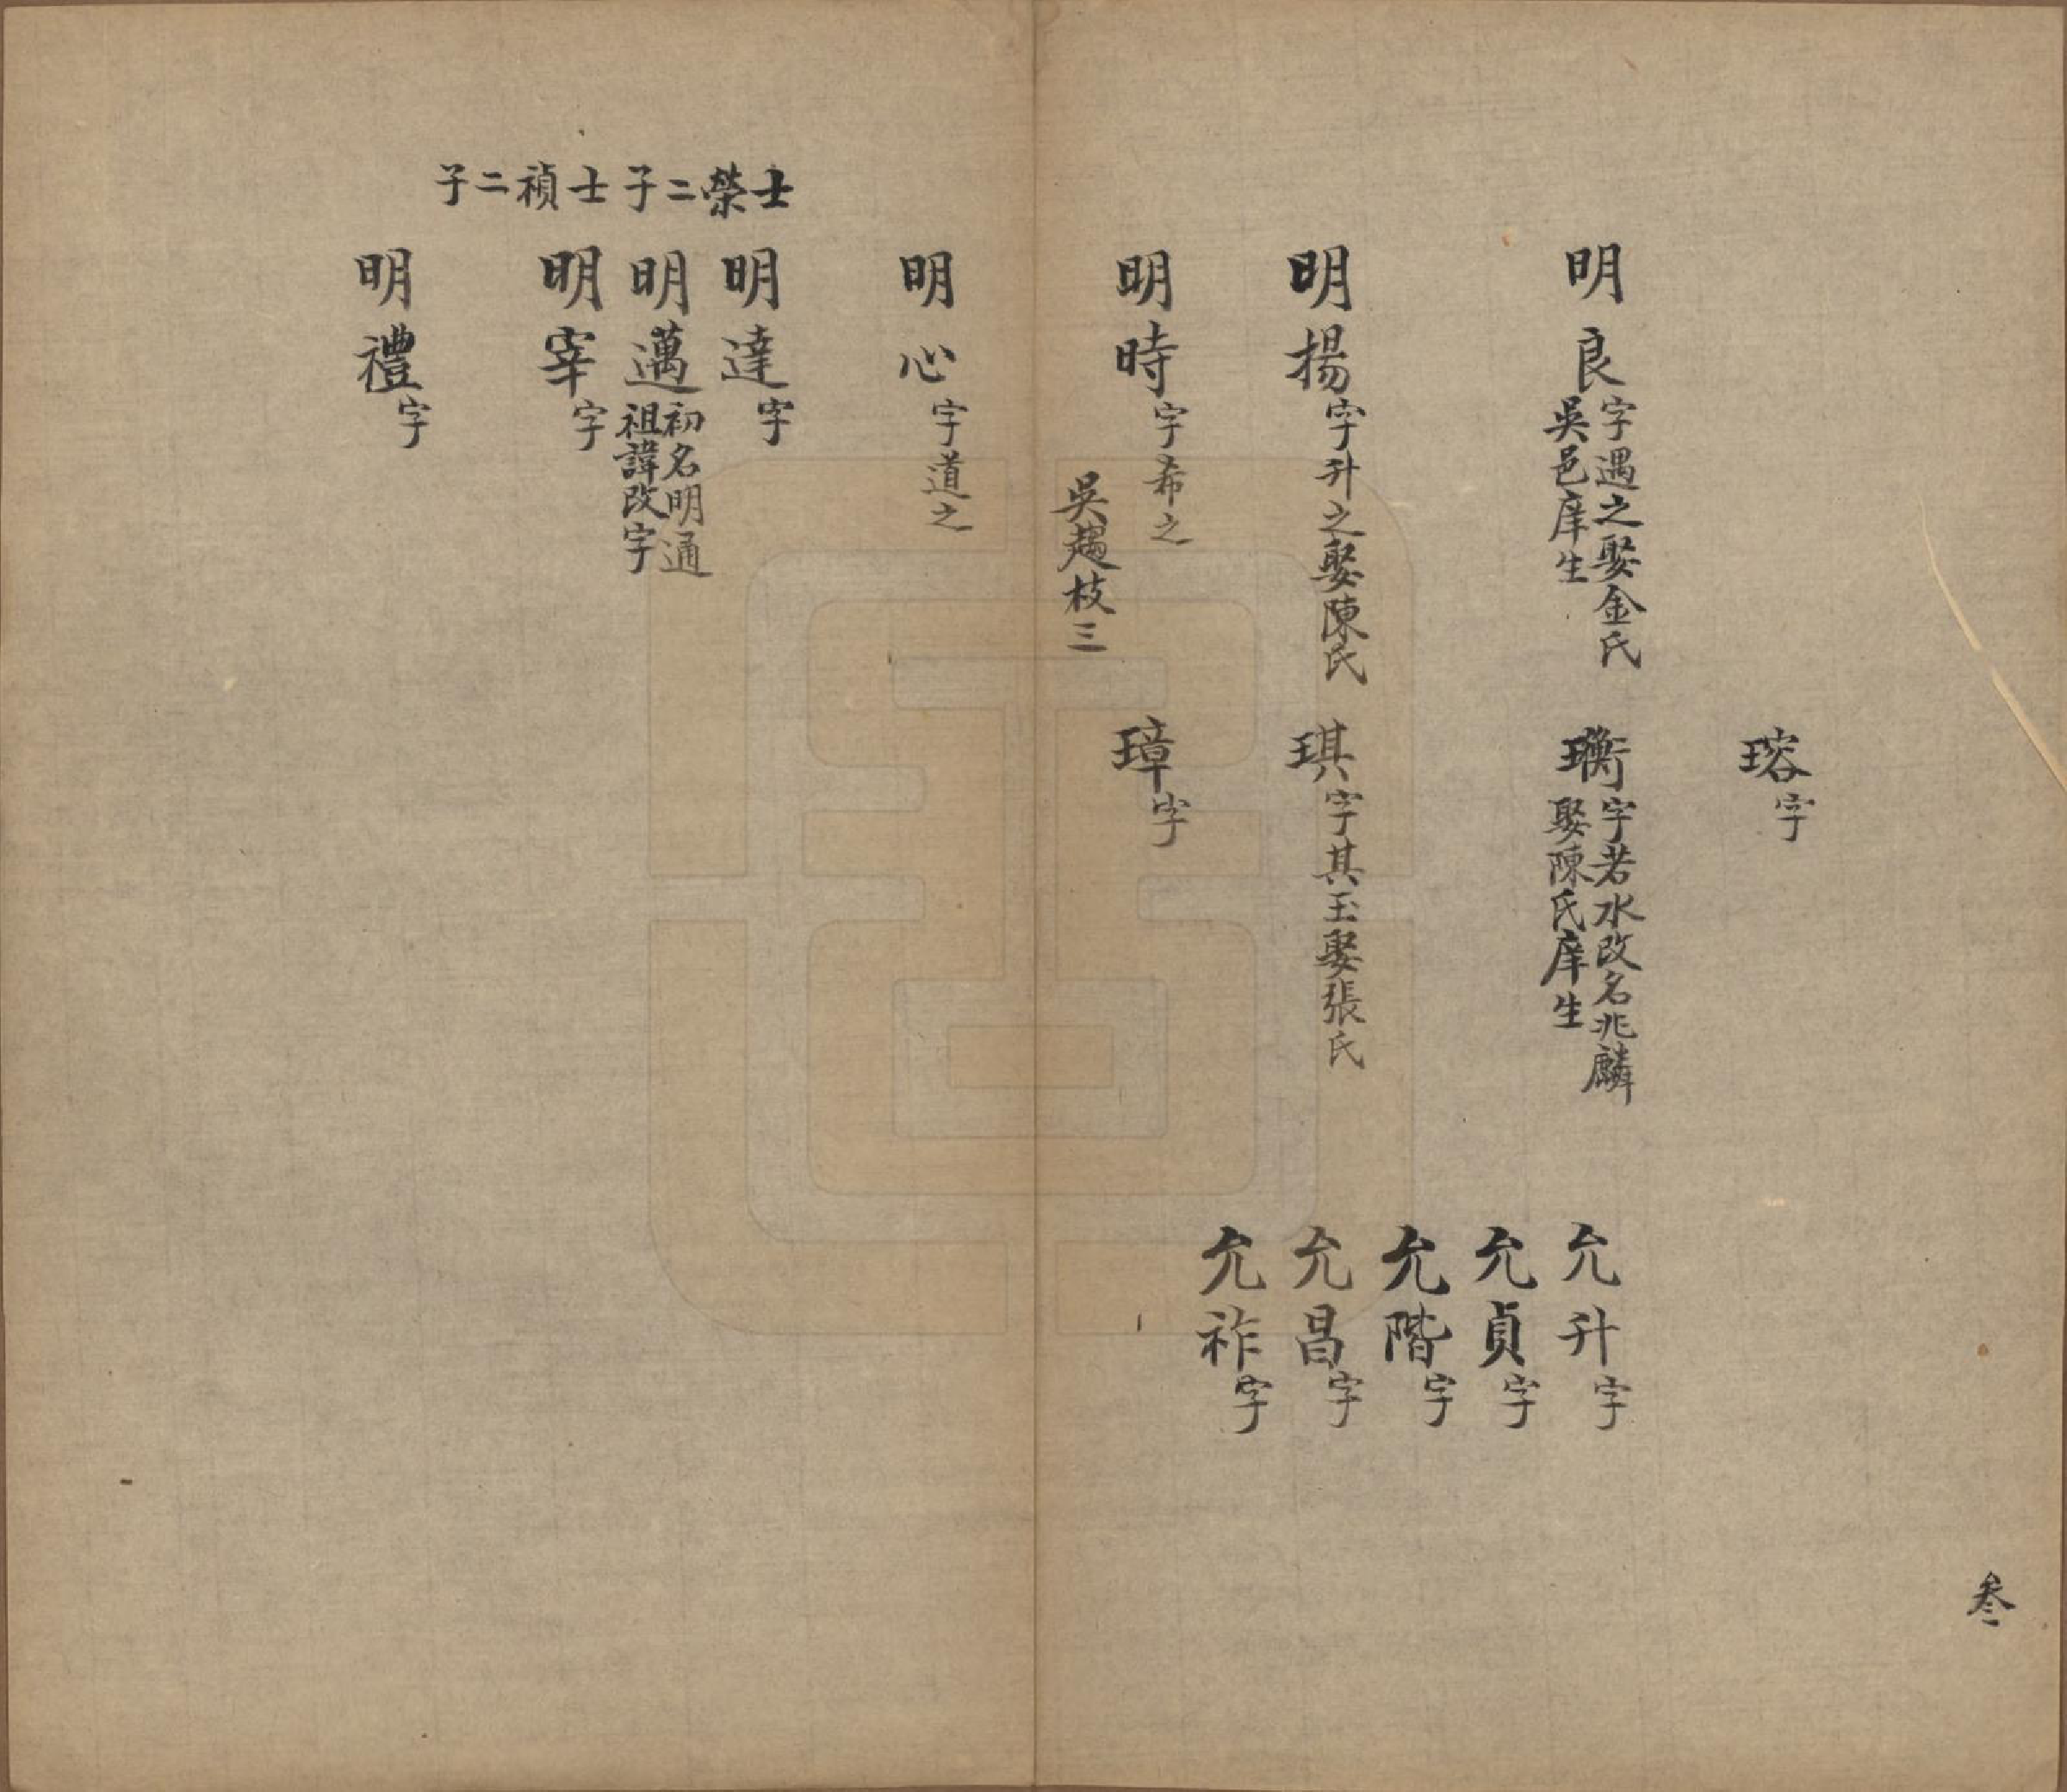 瑢字
明良字遇之娶金氏
吳邑庠生
瑐字若水改名兆麟
娶陳氏庠生
允升字
允貞字
允階字
明揚字升之娶陳氏
琪字其玉娶張氏
允昌字
允祚字
明時字希之
璋字
吳趨枝三
叄
明心字道之
士榮二子
明達字
明邁初名明通
祖諱改字
士禎二子
明宰字
明禮字